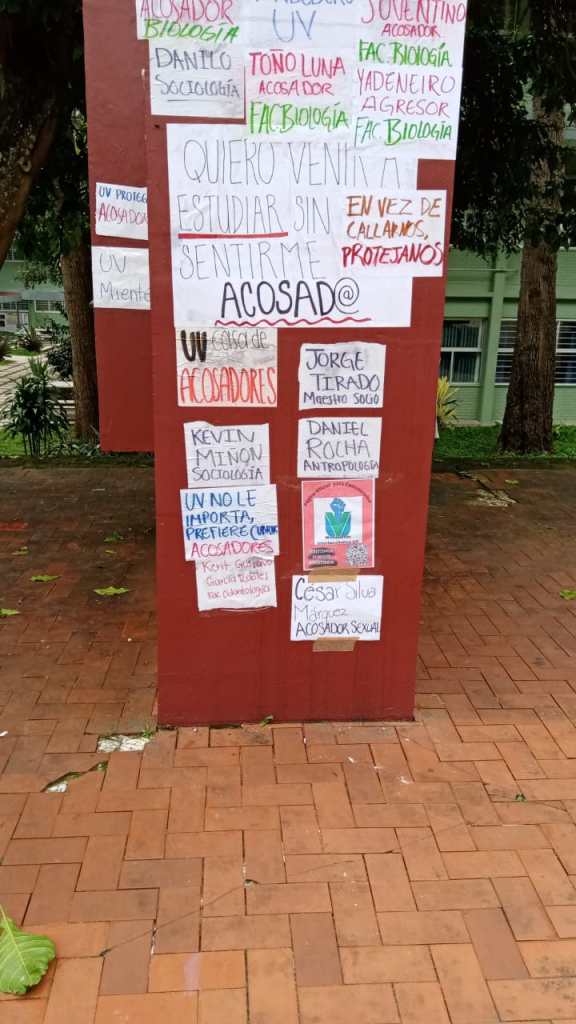 ACOSADOR
BIOLOGÍA
UV
JUVENTINO
ACOSADOR
FAC. BIOLOGÍA
DANILO
SOCIOLOGÍA
TOÑO LUNA
ACOSADOR
FAC BIOLOGÍA
YADENEIRO
AGRESOR
FAC. BIOLOGÍA
QUIERO VENIR A
ESTUDIAR SIN
SENTIRME
ACOSAD@
EN VEZ DE
CALLARNOS,
PROTEJANOS
UV PROTEGE
ACOSADOR
UV
Miente
UV casa de
ACOSADORES
JORGE
TIRADO
MAESTRO SOCIO
KEVIN
MIÑON
SOCIOLOGÍA
DANIEL
ROCHA
ANTROPOLOGÍA
UV NO LE
IMPORTA,
PREFIERE CUBRIR
ACOSADORES
Kent Gustavo
García Robles
Fac odontología
César Silva
Márquez
ACOSADOR SEXUAL